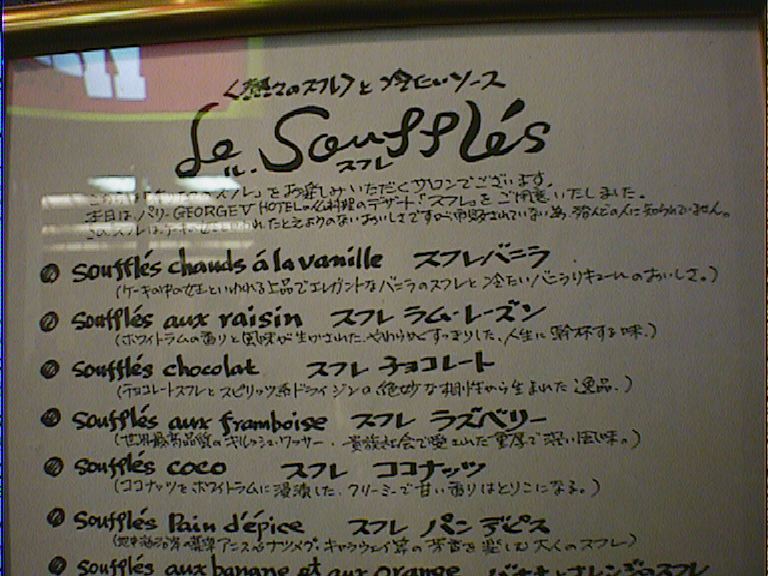 のスフレ〉と冷たいソース
Le Soufflés
ル・スフレ
スフレ」をお楽しみいただくサロンでございます。
本日は、パリ・GEORGE V HOTELの仏料理のデザート「スフレ」をご用意いたしました。
たとえようのないおいしさですが されていない為、殆んどの人に知られていません。
soufflés chauds á la vanille スフレバニラ
(ケーキの中の女王といわれる上品でエレガントなバニラのスフレと冷たいバニラリキュールのおいしさ。)
soufflés aux raisin スフレ ラム・レーズン
(ホワイトラムの香りと風味が生かされた、やわらかですっきりした、人生に乾杯する味。)
soufflés chocolat スフレ チョコレート
(チョコレートスフレとスピリッツ系ドライジンの絶妙な相性から生まれた逸品。)
soufflés aux framboise スフレ ラズベリー
(世界最高品質のキルッシュ・ワッサー、貴族社会で愛された重厚で深い風味。)
soufflés coco スフレ ココナッツ
(ココナッツをホワイトラムに浸漬した、クリーミーで甘い香りはとりこになる。)
soufflés Pain d'épice スフレ パン デピス
アニスやナツメグ、キャラウェイ等の芳香を楽しむ大人のスフレ)
soufflés aux banane et aux orange バナナとオレンジのスフレ